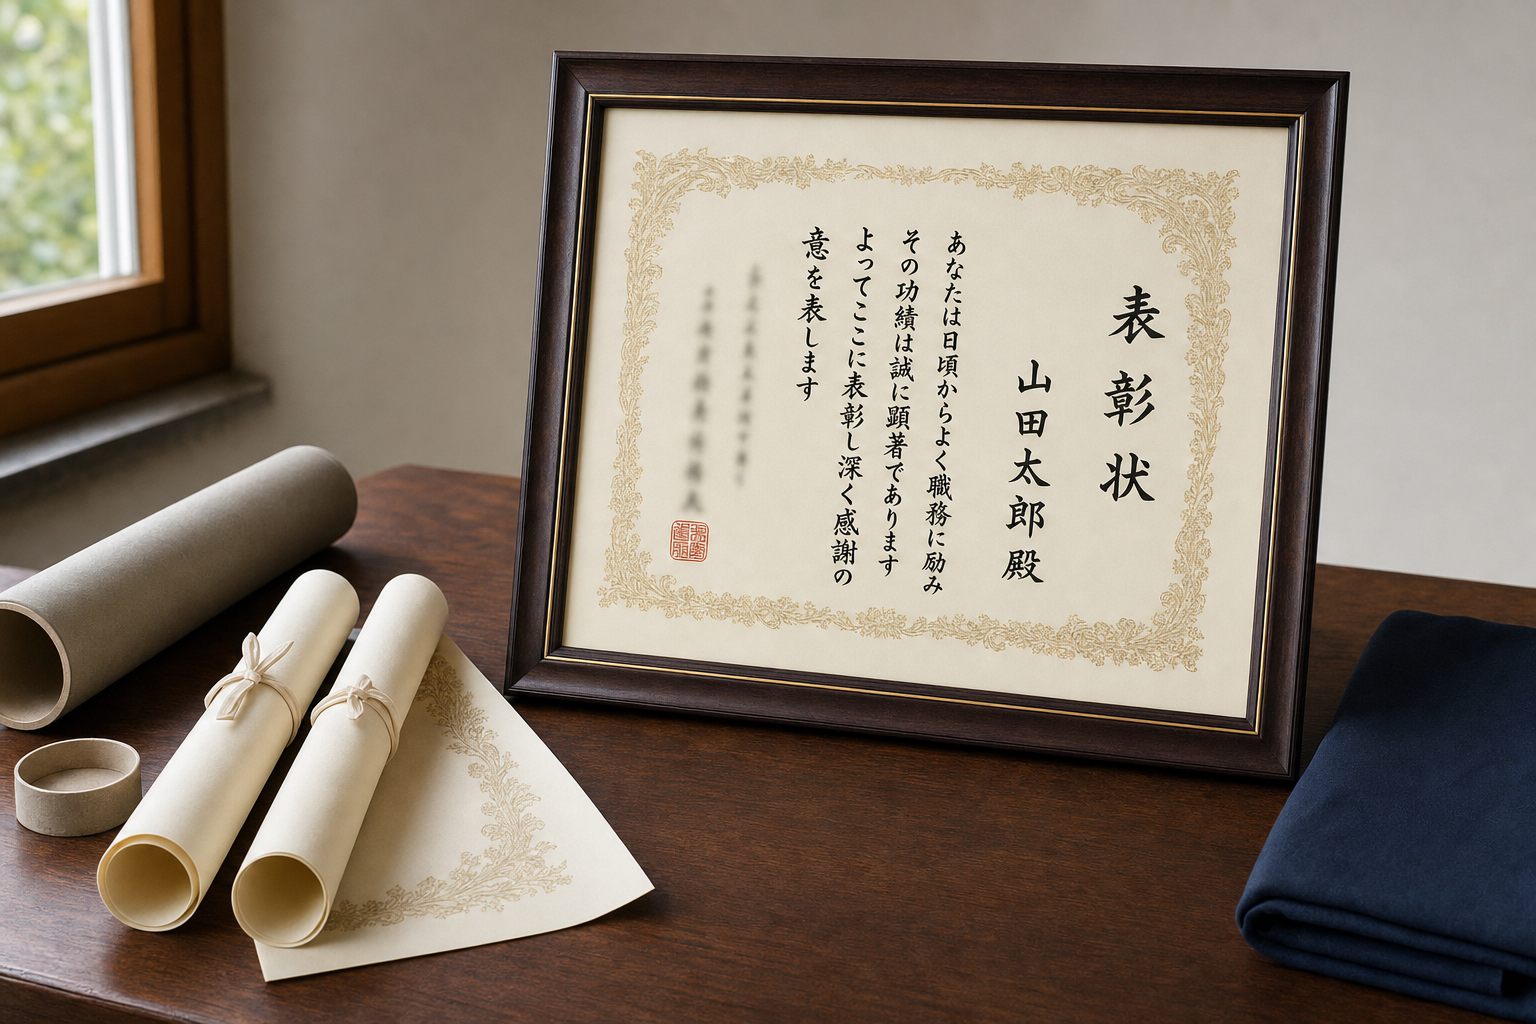 表彰状
山田太郎殿
あなたは日頃からよく職務に励み
その功績は誠に顕著であります
よってここに表彰し深く感謝の
意を表します